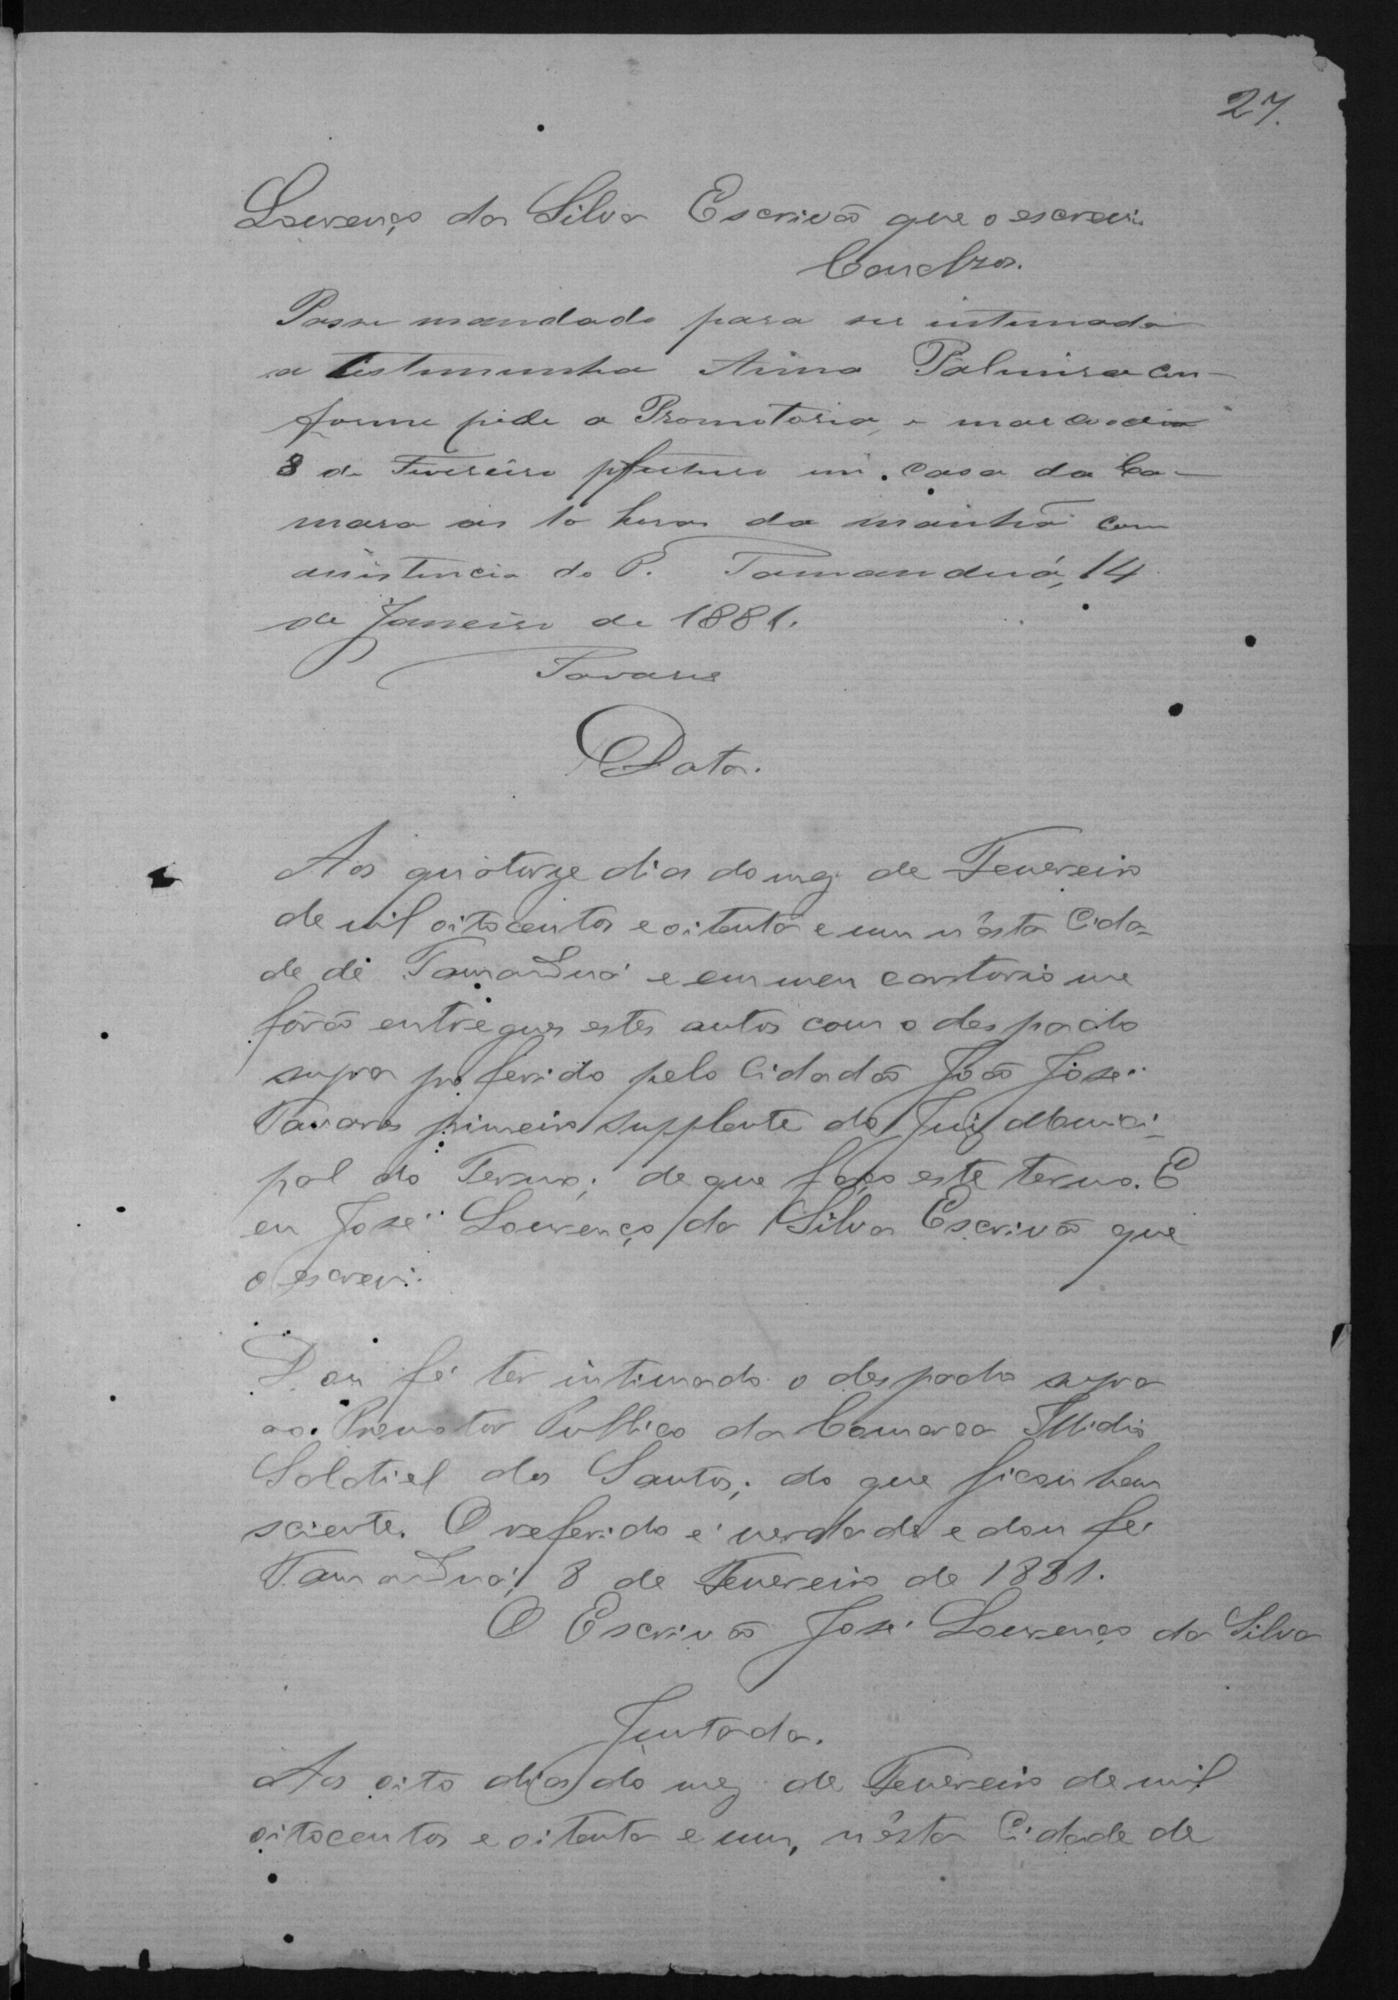 27.
Lourenço da Silva Escrivão que o escrevi.
Conclzos.
Passe mandado para ser intimada
a testimunha Anna Palmira con-
forme pede a Promotoria, e marco o dia
8 de Fevereiro pfuturo em casa da Ca-
mara as 10 horas da manhã com
assistencia do P. Tamanduá, 14
de Janeiro de 1881.
Tavares
Data.
Aos quatorze dias do mez de Fevereiro
de mil oitocentos e oitenta e um n'ésta Cida-
de de Tamanduá e em meu cartorio me
fórão entregues estes autos com o despacho
supra proferido pelo Cidadão João José
Tavares primeiro supplente do Juiz Munici-
pal do Termo; de que faço este termo. E
eu José Lourenço da Silva Escrivão que
o escrevi.
Dou fé ter intimado o despacho supra
ao Promotor Publico da Comarca Illidio
Salatiel dos Santos; do que ficou bem
sciente. O referido é verdade e dou fé
Tamanduá, 8 de Fevereiro de 1881.
O Escrivão José Lourenço da Silva
Juntada.
Aos oito dias do mez de Fevereiro de mil
oitocentos e oitenta e um, n'ésta Cidade de